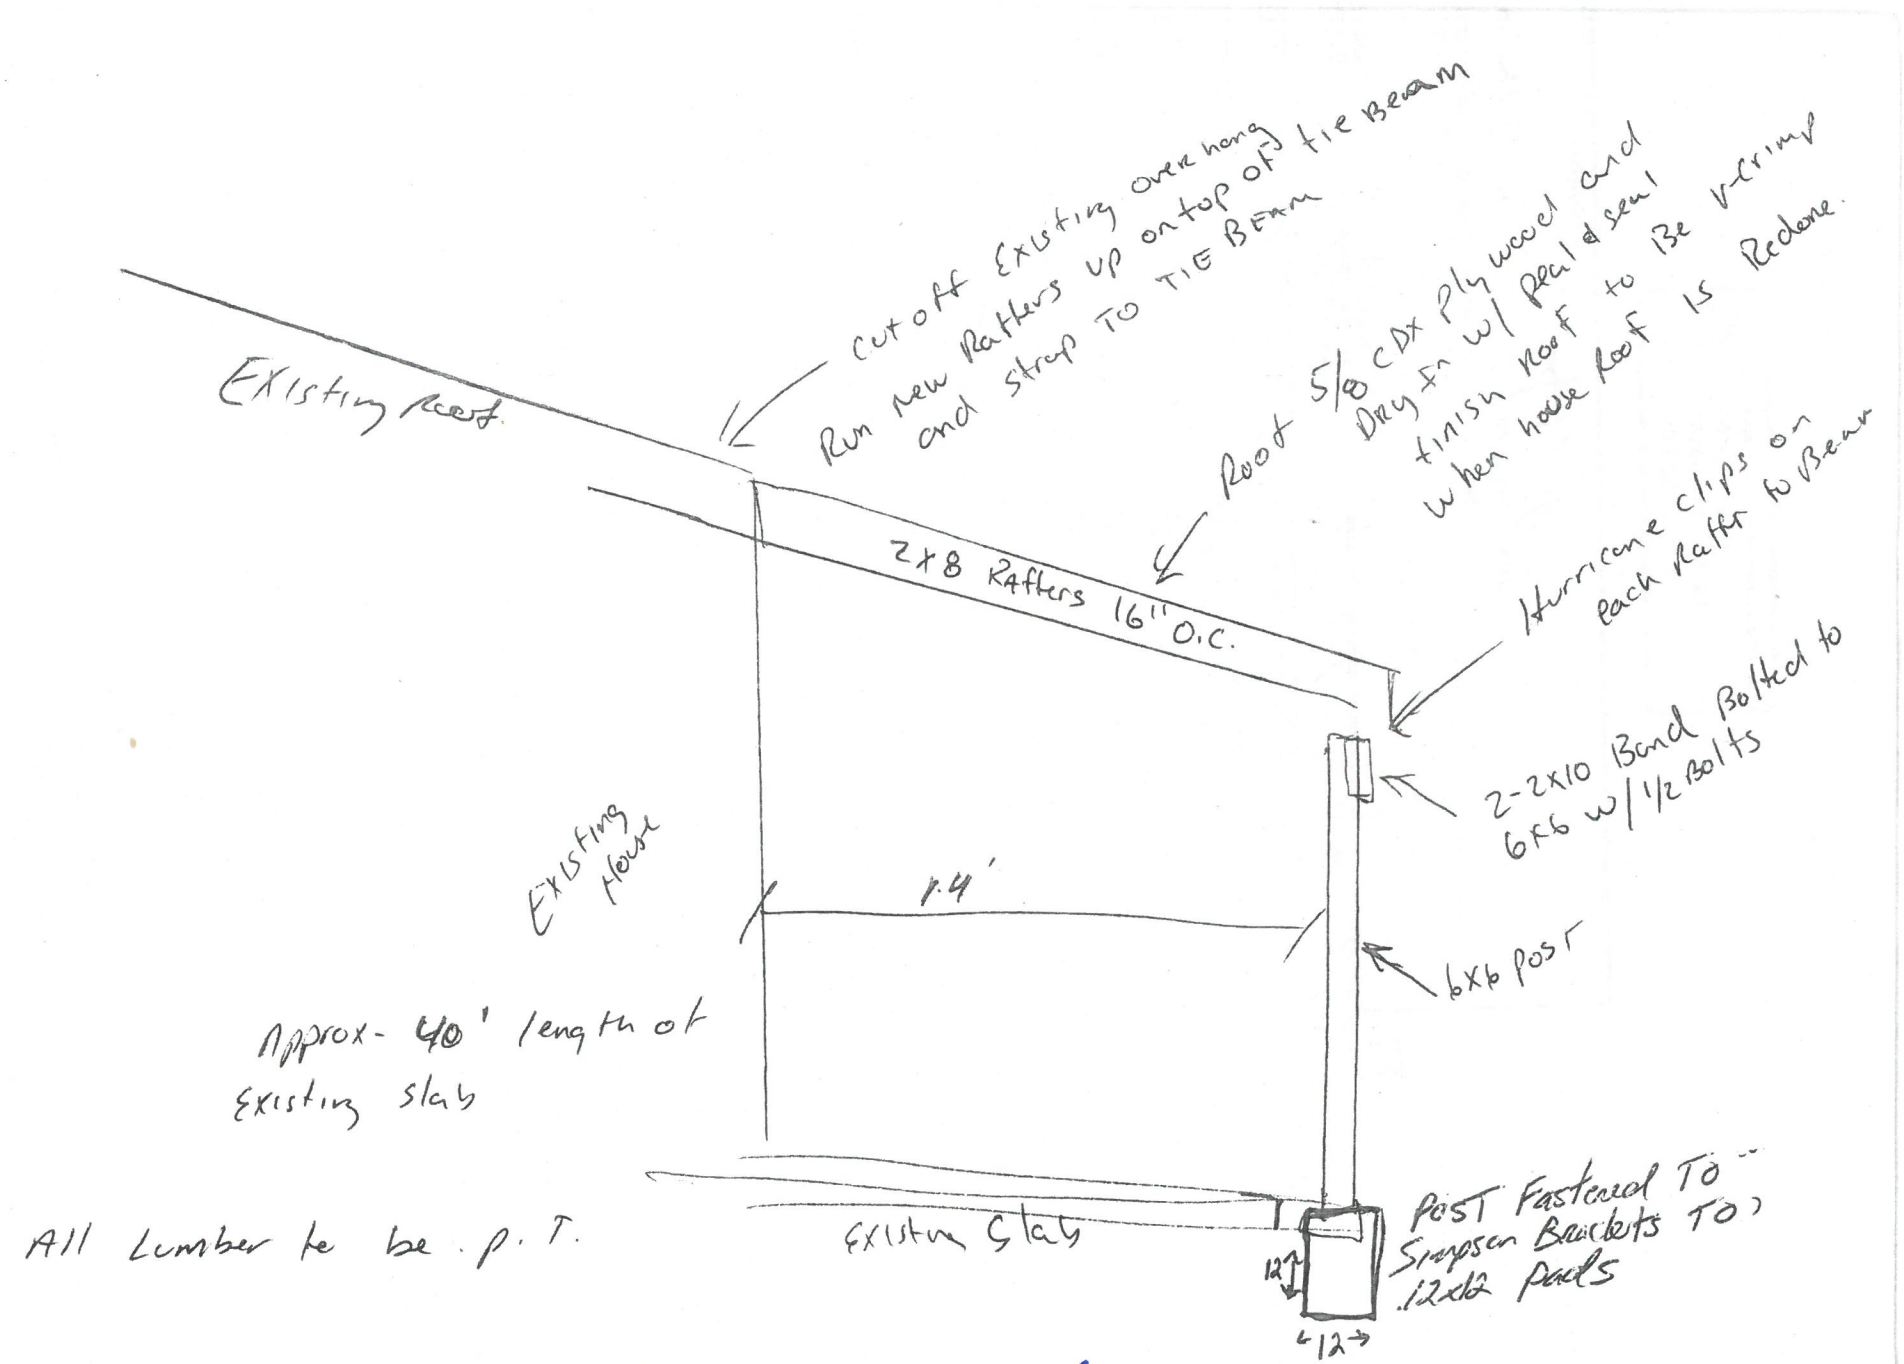 Cut off Existing over hang
Run new Rafters up on top of tie Beam
and strap TO TIE BEAM
Existing Roof.
Roof 5/8 CDX Plywood and
Dry In w/ peal & seal
finish Roof to Be v-crimp
when house Roof is Redone.
2x8 RAfters 16" O.C.
Hurricane clips on
each Rafter to Beam
2-2x10 Band Bolted to
6x6 w/ 1/2 Bolts
Existing
House
14'
6x6 post
Approx- 40' length of
Existing slab
All Lumber to be p.T.
Existin Slab
POST Fastened TO
Simpson Brackets TO
12x12 Pads
12
12